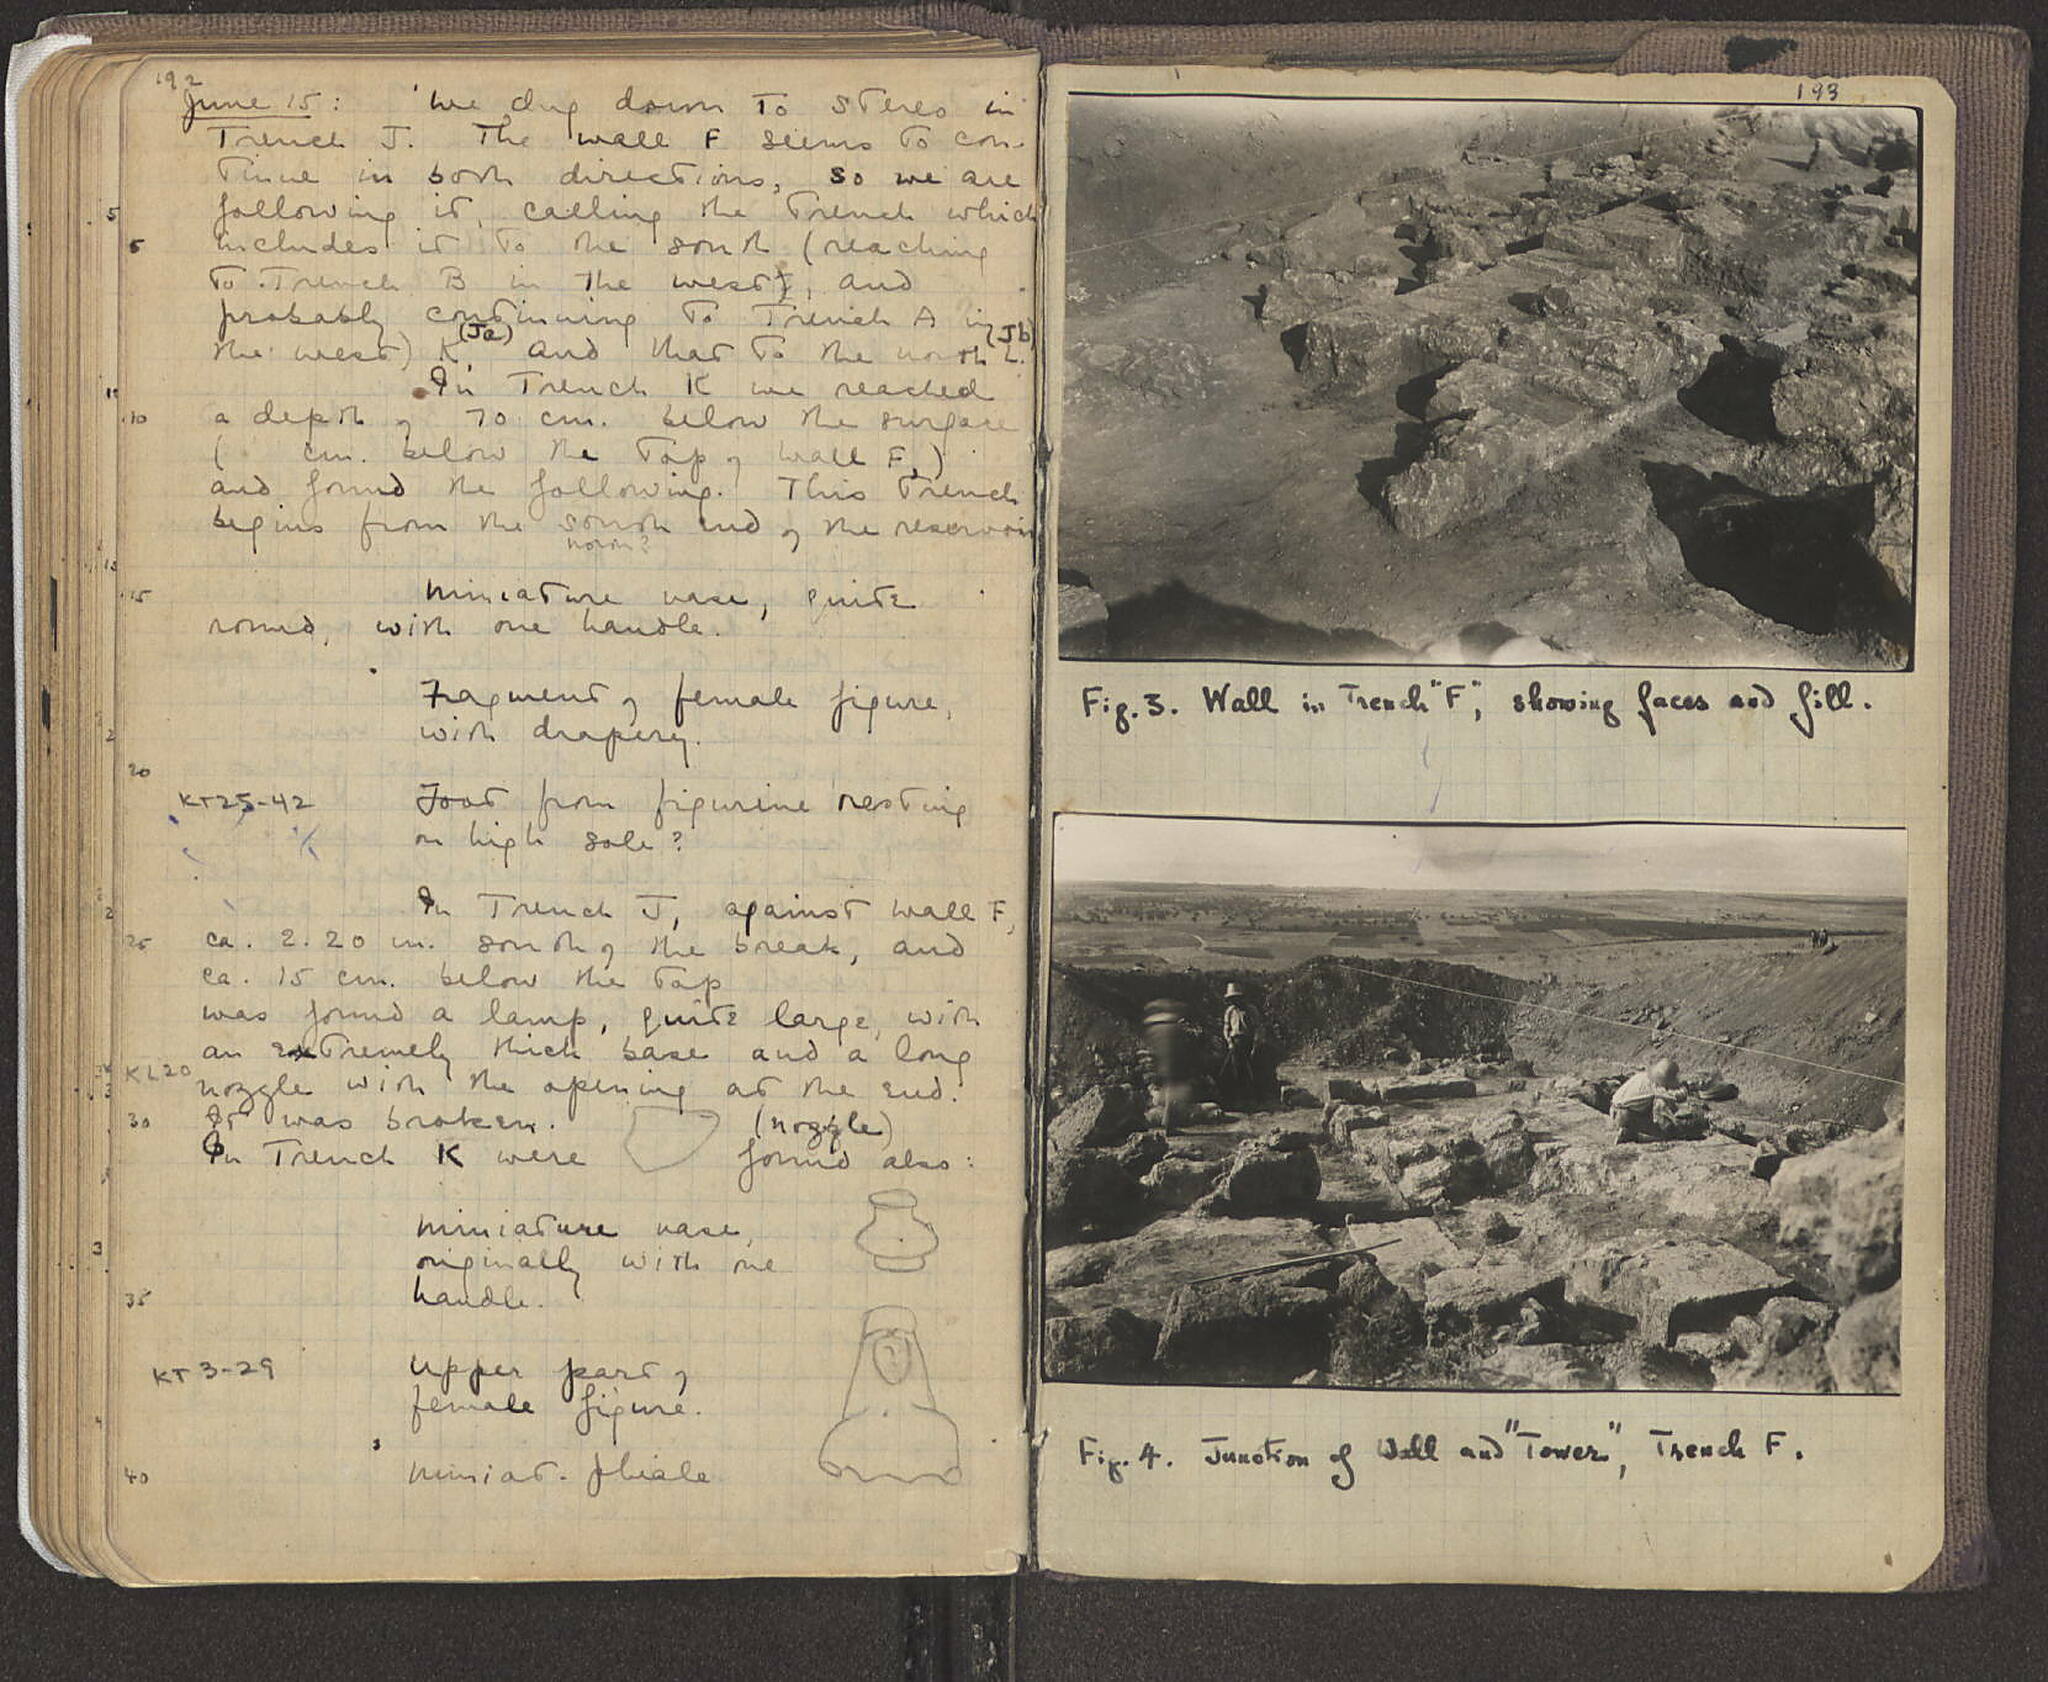 192
June 15: We dug down to stereo in
Trench J. The wall F seems to con-
tinue in both directions, so we are
5 following it, calling the trench which
5 includes it to the south (reaching
to Trench B in the west), and
probably continuing to Trench A in
the west) K (Ja), and that to the north L (Jb).
In Trench K we reached
10 a depth of 70 cm. below the surface
( cm. below the top of wall F,)
and found the following. This trench
begins from the south end of the reservoir
north?
15 Miniature vase, quite
round, with one handle.
Fragment of female figure,
with drapery.
20
KT25-42 Foot from figurine resting
on high sole?
In Trench J, against wall F,
25 ca. 2.20 m. south of the break, and
ca. 15 cm. below the top
was found a lamp, quite large, with
an extremely thick base and a long
KL20 nozzle with the opening at the end.
30 It was broken. (nozzle)
In Trench K were found also:
Miniature vase,
originally with one
35 handle.
KT3-29 Upper part of
female figure.
40 Miniat. phiale
193
Fig. 3. Wall in Trench "F", showing faces and fill.
Fig. 4. Junction of Wall and "Tower", Trench F.